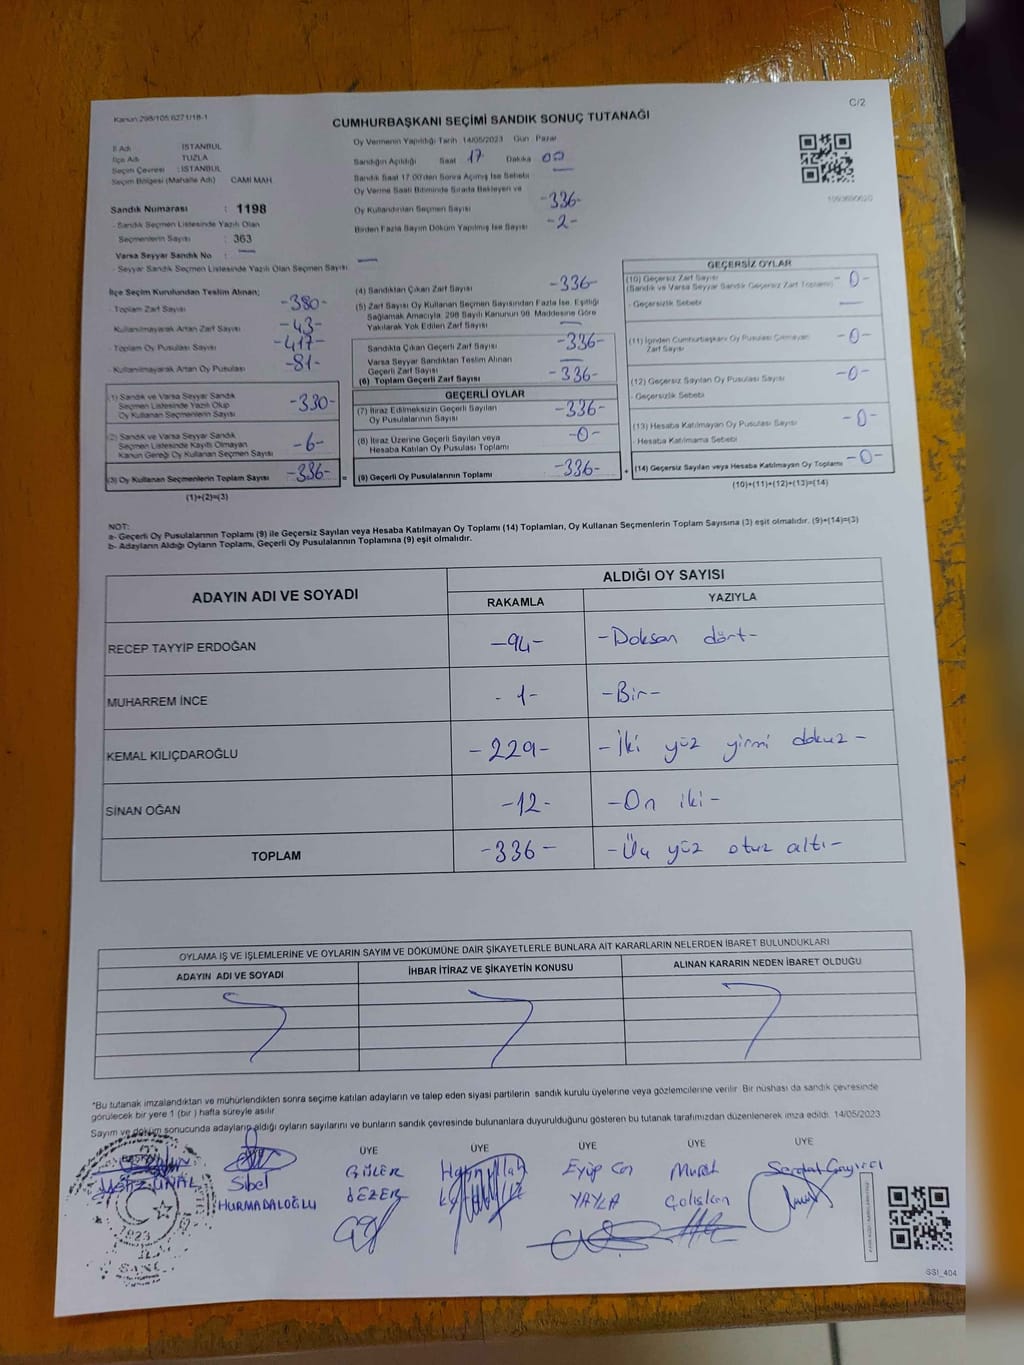 C/2
Kanun:298/105,6271/18-1
CUMHURBAŞKANI SEÇİMİ SANDIK SONUÇ TUTANAĞI
İl Adı : İSTANBUL
İlçe Adı : TUZLA
Seçim Çevresi : İSTANBUL
Seçim Bölgesi (Mahalle Adı) CAMİ MAH
Sandık Numarası : 1198
- Sandık Seçmen Listesinde Yazılı Olan
Seçmenlerin Sayısı : 363
Varsa Seyyar Sandık No : —
- Seyyar Sandık Seçmen Listesinde Yazılı Olan Seçmen Sayısı —
Oy Vermenin Yapıldığı Tarih 14/05/2023 Gün : Pazar
Sandığın Açıldığı Saat 17 Dakika 00
Sandık Saat 17:00'den Sonra Açılmış İse Sebebi —
Oy Verme Saati Bitiminde Sırada Bekleyen ve
Oy Kullandırılan Seçmen Sayısı -336-
Birden Fazla Sayım Döküm Yapılmış İse Sayısı -2-
İlçe Seçim Kurulundan Teslim Alınan;
- Toplam Zarf Sayısı -380-
Kullanılmayarak Artan Zarf Sayısı -43-
- Toplam Oy Pusulası Sayısı -417-
- Kullanılmayarak Artan Oy Pusulası -81-
(1) Sandık ve Varsa Seyyar Sandık
Seçmen Listesinde Yazılı Olup
Oy Kullanan Seçmenlerin Sayısı -330-
(2) Sandık ve Varsa Seyyar Sandık
Seçmen Listesinde Kayıtlı Olmayan
Kanun Gereği Oy Kullanan Seçmen Sayısı -6-
(3) Oy Kullanan Seçmenlerin Toplam Sayısı -336-
(1)+(2)=(3)
(4) Sandıktan Çıkan Zarf Sayısı -336-
(5) Zarf Sayısı Oy Kullanan Seçmen Sayısından Fazla İse, Eşitliği
Sağlamak Amacıyla, 298 Sayılı Kanunun 98. Maddesine Göre
Yakılarak Yok Edilen Zarf Sayısı —
Sandıkta Çıkan Geçerli Zarf Sayısı -336-
Varsa Seyyar Sandıktan Teslim Alınan
Geçerli Zarf Sayısı —
(6) Toplam Geçerli Zarf Sayısı -336-
GEÇERLİ OYLAR
(7) İtiraz Edilmeksizin Geçerli Sayılan
Oy Pusulalarının Sayısı -336-
(8) İtiraz Üzerine Geçerli Sayılan veya
Hesaba Katılan Oy Pusulası Toplamı -0-
= (9) Geçerli Oy Pusulalarının Toplamı -336-
GEÇERSİZ OYLAR
(10) Geçersiz Zarf Sayısı
(Sandık ve Varsa Seyyar Sandık Geçersiz Zarf Toplamı) -0-
- Geçersizlik Sebebi —
(11) İçinden Cumhurbaşkanı Oy Pusulası Çıkmayan
Zarf Sayısı -0-
(12) Geçersiz Sayılan Oy Pusulası Sayısı -0-
- Geçersizlik Sebebi
(13) Hesaba Katılmayan Oy Pusulası Sayısı -0-
- Hesaba Katılmama Sebebi
+ (14) Geçersiz Sayılan veya Hesaba Katılmayan Oy Toplamı -0-
(10)+(11)+(12)+(13)=(14)
NOT:
a- Geçerli Oy Pusulalarının Toplamı (9) ile Geçersiz Sayılan veya Hesaba Katılmayan Oy Toplamı (14) Toplamları, Oy Kullanan Seçmenlerin Toplam Sayısına (3) eşit olmalıdır. (9)+(14)=(3)
b- Adayların Aldığı Oyların Toplamı, Geçerli Oy Pusulalarının Toplamına (9) eşit olmalıdır.
ADAYIN ADI VE SOYADI ALDIĞI OY SAYISI
RAKAMLA YAZIYLA
RECEP TAYYİP ERDOĞAN -94- -Doksan dört-
MUHARREM İNCE -1- -Bir-
KEMAL KILIÇDAROĞLU -229- -İki yüz yirmi dokuz-
SİNAN OĞAN -12- -On iki-
TOPLAM -336- -Üç yüz otuz altı-
OYLAMA İŞ VE İŞLEMLERİNE VE OYLARIN SAYIM VE DÖKÜMÜNE DAİR ŞİKAYETLERLE BUNLARA AİT KARARLARIN NELERDEN İBARET BULUNDUKLARI
ADAYIN ADI VE SOYADI İHBAR İTİRAZ VE ŞİKAYETİN KONUSU ALINAN KARARIN NEDEN İBARET OLDUĞU
*Bu tutanak imzalandıktan ve mühürlendikten sonra seçime katılan adayların ve talep eden siyasi partilerin sandık kurulu üyelerine veya gözlemcilerine verilir. Bir nüshası da sandık çevresinde
görülecek bir yere 1 (bir ) hafta süreyle asılır.
Sayım ve döküm sonucunda adayların aldığı oyların sayılarını ve bunların sandık çevresinde bulunanlara duyurulduğunu gösteren bu tutanak tarafımızdan düzenlenerek imza edildi. 14/05/2023
ÜYE ÜYE ÜYE ÜYE ÜYE
ÜNAL
Sibel HURMADALOĞLU
GÜLER SEZER
Hayrullah
Eyüp Can YAYLA
Murat Çalışkan
Serdat
1923
SSİ_404